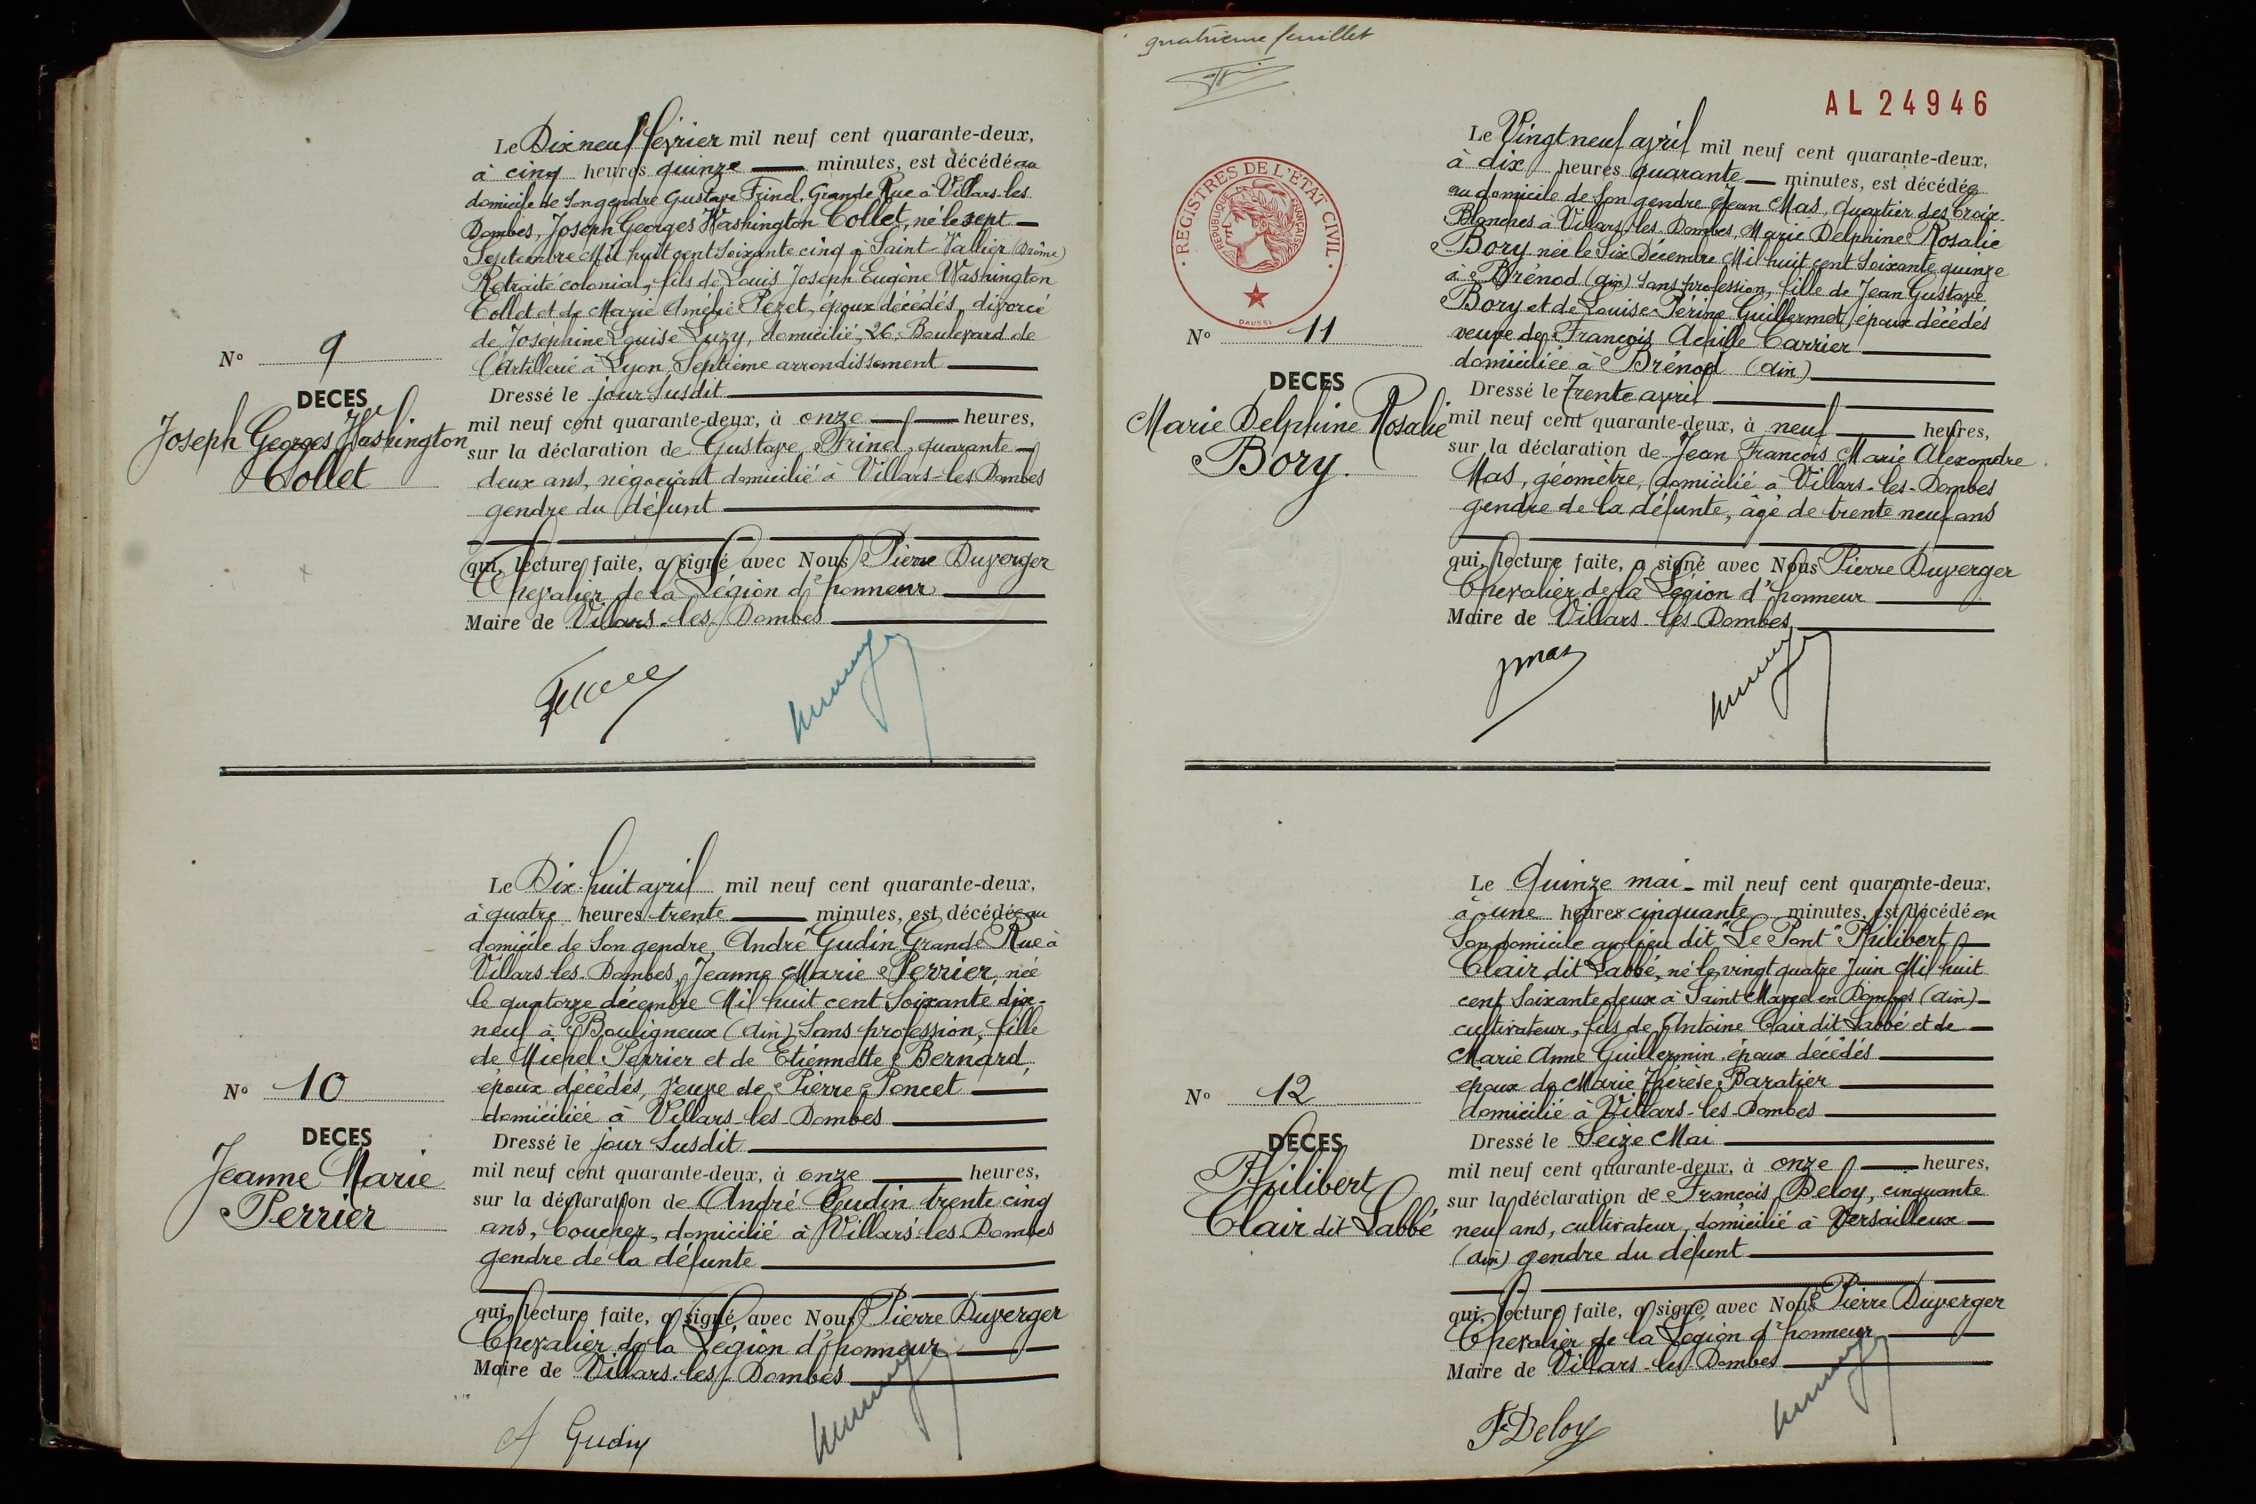 Le Dix neuf février mil neuf cent quarante-deux,
à cinq heures quinze minutes, est décédé au
domicile de son gendre Gustave Frinel, Grande Rue à Villars-les
Dombes, Joseph Georges Washington Collet, né le sept
Septembre Mil huit cent soixante cinq à Saint-Vallier (Drôme)
Retraité colonial, fils de Louis Joseph Eugène Washington
Collet et de Marie Amélie Pezet, époux décédés, divorcé
de Joséphine Louise Luzy, domicilié, 26, Boulevard de
l'Artillerie à Lyon, Septième arrondissement
Nº 9
DECES
Joseph Georges Washington
Collet
Dressé le jour susdit
mil neuf cent quarante-deux, à onze heures,
sur la déclaration de Gustave Frinel, quarante
deux ans, négociant domicilié à Villars-les Dombes
gendre du défunt
qui, lecture faite, a signé avec Nous Pierre Duverger
Chevalier de la Légion d'honneur
Maire de Villars-les-Dombes
Le Dix-huit avril mil neuf cent quarante-deux,
à quatre heures trente minutes, est décédée au
domicile de son gendre, André Gudin Grande Rue à
Villars-les-Dombes, Jeanne Marie Perrier, née
le quatorze décembre Mil huit cent soixante dix-
neuf à Bouligneux (Ain) Sans profession, fille
de Michel Perrier et de Etiennette Bernard,
époux décédés, veuve de Pierre Poncet
domiciliée à Villars-les-Dombes
Nº 10
DECES
Jeanne Marie
Perrier
Dressé le jour susdit
mil neuf cent quarante-deux, à onze heures,
sur la déclaration de André Gudin trente cinq
ans, boucher, domicilié à Villars-les-Dombes
gendre de la défunte
qui, lecture faite, a signé avec Nous Pierre Duverger
Chevalier de la Légion d'honneur
Maire de Villars-les-Dombes
A Gudin
quatrième feuillet
AL 24946
REGISTRES DE L'ÉTAT CIVIL
REPUBLIQUE FRANÇAISE
DAUSSI
Le Vingt neuf avril mil neuf cent quarante-deux,
à dix heures quarante minutes, est décédée
au domicile de son gendre Jean Mas, Quartier des Croix-
Blanches à Villars-les-Dombes, Marie Delphine Rosalie
Bory née le Six Décembre Mil huit cent soixante quinze
à Brénod (Ain) Sans profession, fille de Jean Gustave
Bory et de Louise Périne Guillermet, époux décédés
veuve de François Achille Carrier
domiciliée à Brénod (Ain)
Nº 11
DECES
Marie Delphine Rosalie
Bory.
Dressé le Trente avril
mil neuf cent quarante-deux, à neuf heures,
sur la déclaration de Jean François Marie Alexandre
Mas, géomètre, domicilié à Villars-les-Dombes
gendre de la défunte, âgé de trente neuf ans
qui, lecture faite, a signé avec Nous Pierre Duverger
Chevalier de la Légion d'honneur
Maire de Villars-les-Dombes
JMas
Le Quinze mai mil neuf cent quarante-deux,
à une heures cinquante minutes, est décédé en
Son domicile au lieu dit "Le Pont" Philibert
Clair dit Labbé, né le vingt quatre Juin Mil huit
cent soixante deux à Saint Marcel en Dombes (Ain)
cultivateur, fils de Antoine Clair dit Labbé et de
Marie Anne Guillermin, époux décédés
époux de Marie Thérèse Baratier
domicilié à Villars-les-Dombes
Nº 12
DECES
Philibert
Clair dit Labbé
Dressé le Seize Mai
mil neuf cent quarante-deux, à onze heures,
sur la déclaration de François Deloy, cinquante
neuf ans, cultivateur, domicilié à Versailleux
(Ain) gendre du défunt
qui, lecture faite, a signé avec Nous Pierre Duverger
Chevalier de la Légion d'honneur
Maire de Villars-les-Dombes
F. Deloy